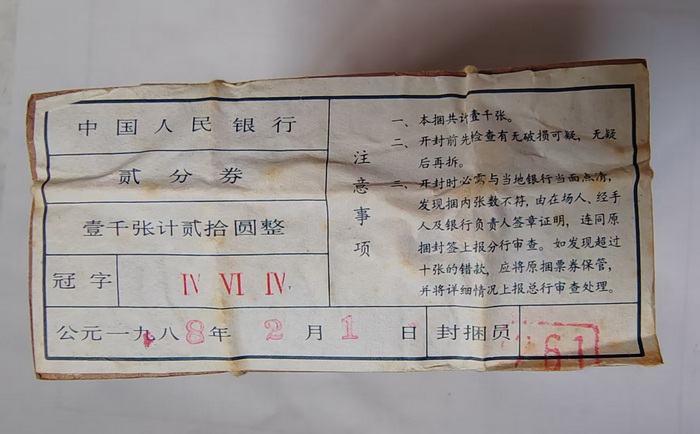 中国人民银行
贰分券
壹千张计贰拾圆整
冠字 IV VI IV
公元一九八8年2月1日 封捆员 61
注意事项
一、本捆共计壹千张。
二、开封前先检查有无破损可疑，无疑
后再拆。
三、开封时必需与当地银行当面点清，
发现捆内张数不符，由在场人、经手
人及银行负责人签章证明，连同原
捆封签上报分行审查。如发现超过
十张的错款，应将原捆票券保管，
并将详细情况上报总行审查处理。